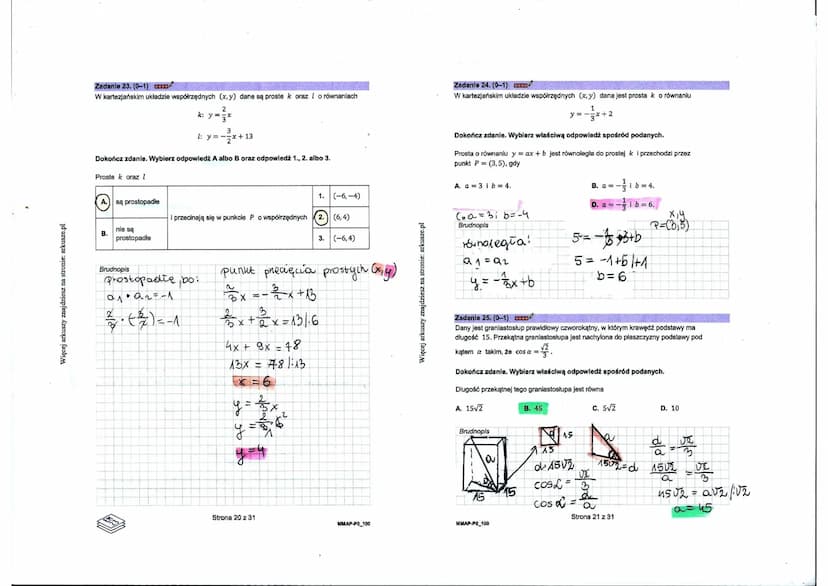 Zadanie 23. (0–1)
W kartezjańskim układzie współrzędnych (x, y) dane są proste k oraz l o równaniach
k: y = 2/3 x
l: y = −3/2 x + 13
Dokończ zdanie. Wybierz odpowiedź A albo B oraz odpowiedź 1., 2. albo 3.
Proste k oraz l
A. są prostopadłe
B. nie są prostopadłe
i przecinają się w punkcie P o współrzędnych
1. (−6, −4)
2. (6, 4)
3. (−6, 4)
Brudnopis
Prostopadłe, bo:
a1 • a2 = −1
2/3 · (−3/2) = −1
punkt przecięcia prostych (x, y)
2/3 x = −3/2 x + 13
2/3 x + 3/2 x = 13 /·6
4x + 9x = 78
13x = 78 /:13
x = 6
y = 2/3 x
y = 2/3 · 6
y = 4
Strona 20 z 31
MMAP-P0_100
Więcej arkuszy znajdziesz na stronie: arkusze.pl
Zadanie 24. (0–1)
W kartezjańskim układzie współrzędnych (x, y) dana jest prosta k o równaniu
y = −1/3 x + 2
Dokończ zdanie. Wybierz właściwą odpowiedź spośród podanych.
Prosta o równaniu y = ax + b jest równoległa do prostej k i przechodzi przez
punkt P = (3, 5), gdy
A. a = 3 i b = 4.
B. a = −1/3 i b = 4.
C. a = 3 i b = −4
D. a = −1/3 i b = 6.
Brudnopis
x, y
P = (3, 5)
równoległa:
a1 = a2
y = −1/3 x + b
5 = −1/3 · 3 + b
5 = −1 + b /+1
b = 6
Zadanie 25. (0–1)
Dany jest graniastosłup prawidłowy czworokątny, w którym krawędź podstawy ma
długość 15. Przekątna graniastosłupa jest nachylona do płaszczyzny podstawy pod
kątem α takim, że cos α = √2/3.
Dokończ zdanie. Wybierz właściwą odpowiedź spośród podanych.
Długość przekątnej tego graniastosłupa jest równa
A. 15√2
B. 45
C. 5√2
D. 10
Brudnopis
a
15
15
d
15
15
d = 15√2
cos α = √2/3
cos α = d/a
a
15√2 = d
d/a = √2/3
15√2/a = √2/3
45√2 = a√2 /:√2
a = 45
Strona 21 z 31
MMAP-P0_100
Więcej arkuszy znajdziesz na stronie: arkusze.pl